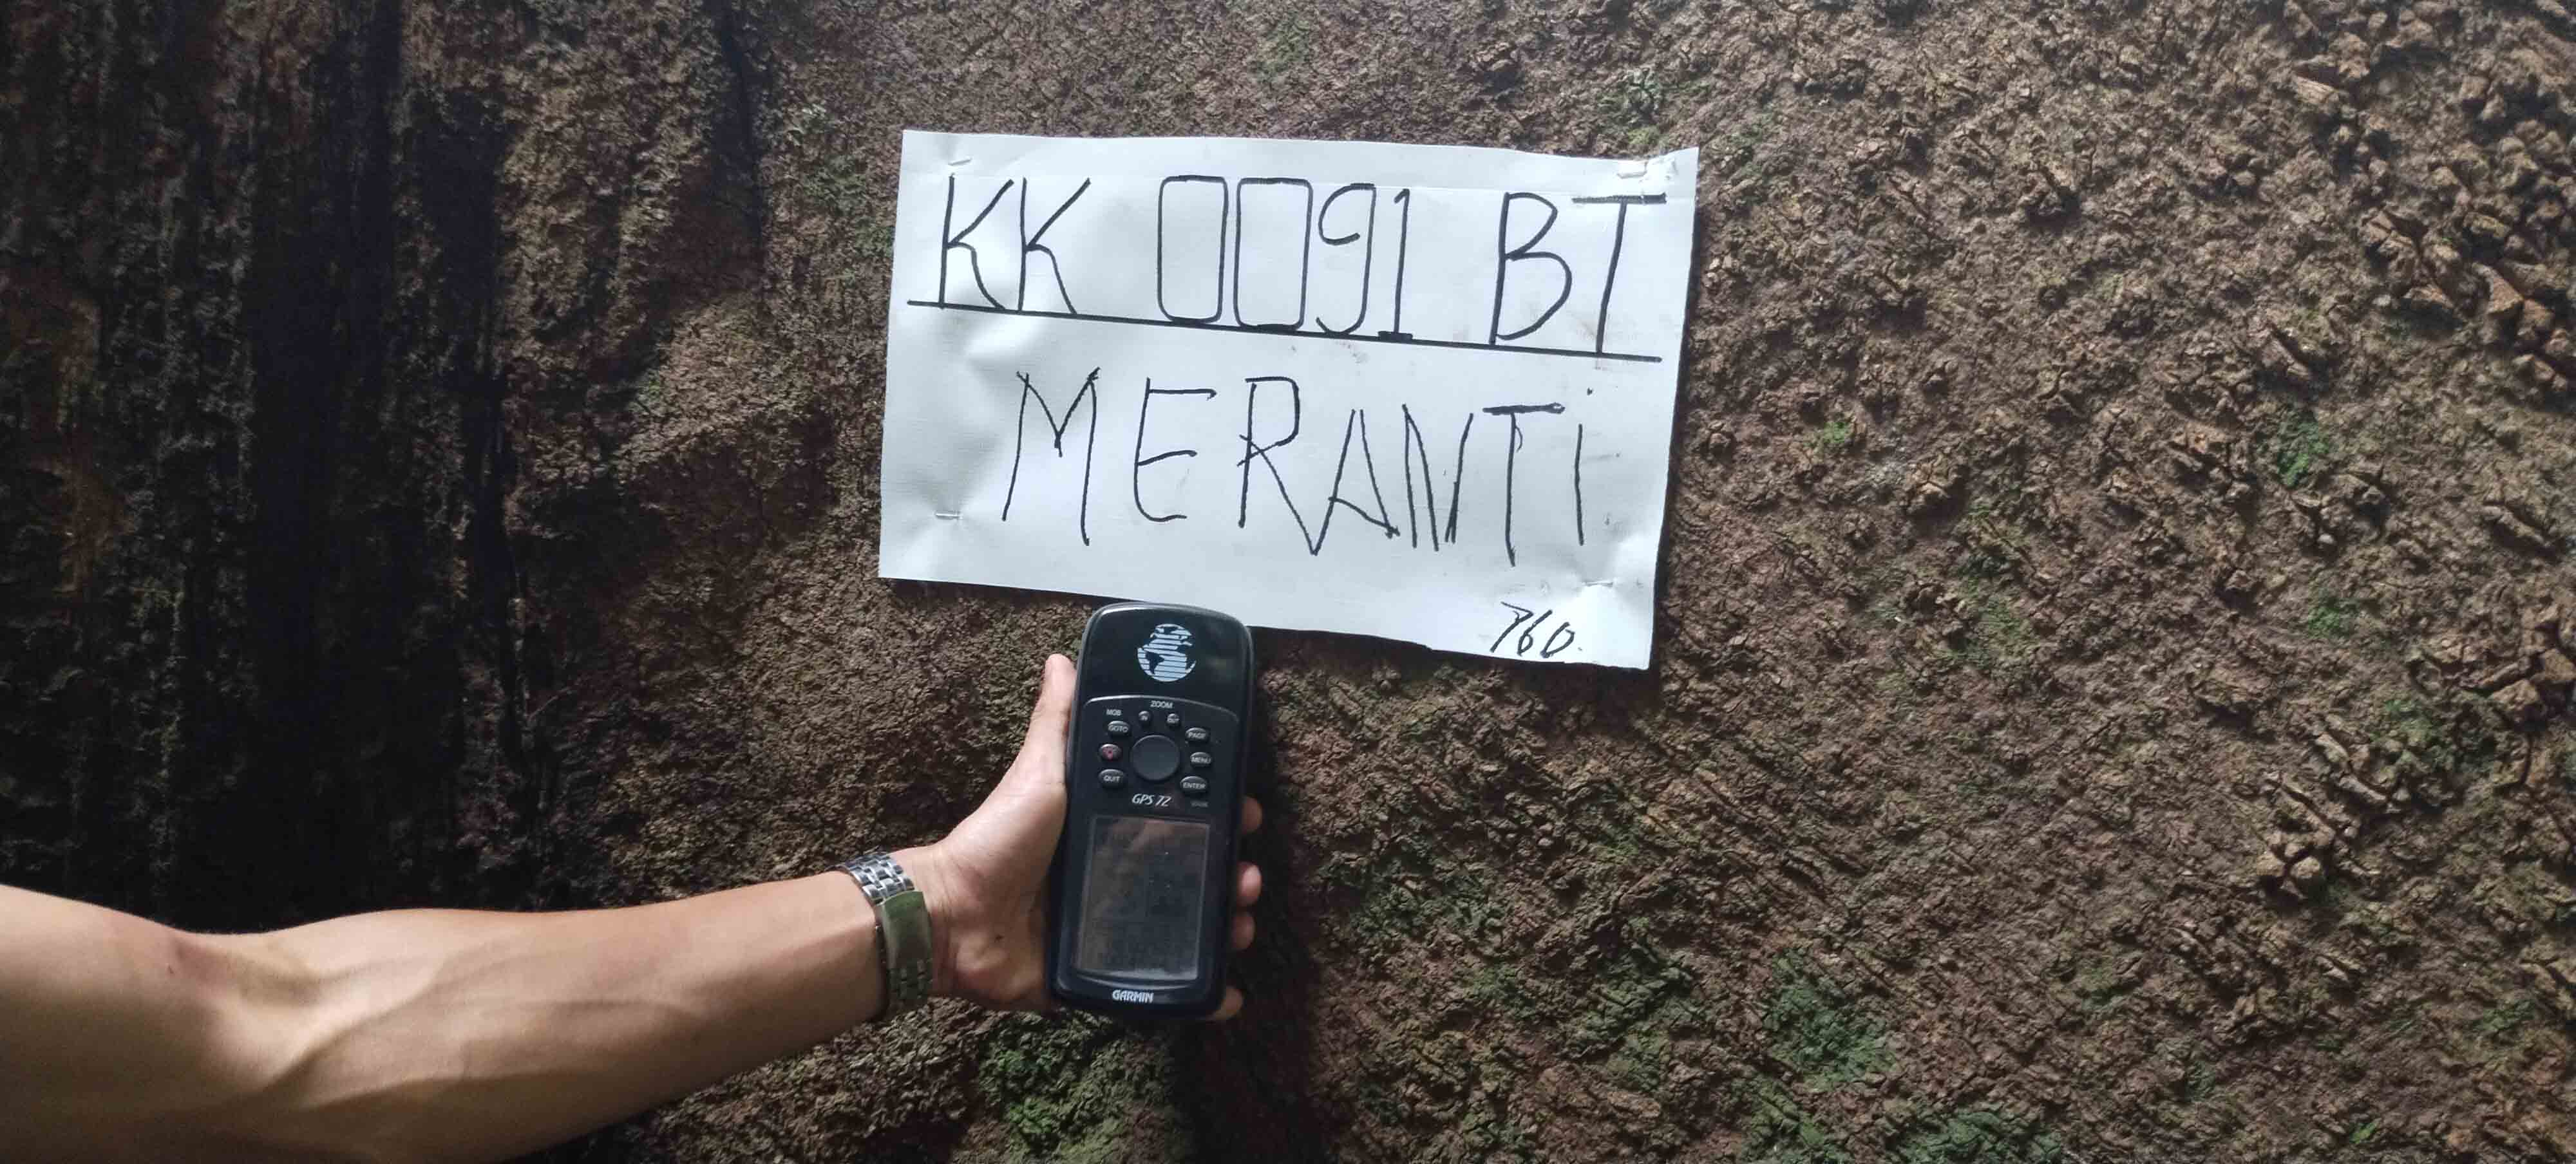 KK 0091 BT
MERANTi
760.
ZOOM
MOB
IN
OUT
GOTO
PAGE
MENU
QUIT
ENTER
GPS 72
GARMIN